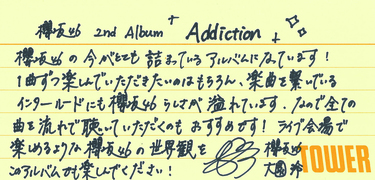 欅坂46 2nd Album「Addiction」
欅坂46の今がとても詰まっているアルバムになっています！
1曲ずつ楽しんでいただきたいのはもちろん、楽曲を繋いでいる
インタールードにも欅坂46らしさが溢れています。なので全ての
曲を流れで聴いていただくのもおすすめです！ライブ会場で
楽しめるような欅坂46の世界観を
このアルバムでも楽しんでください！
欅坂46
大園 玲
TOWER